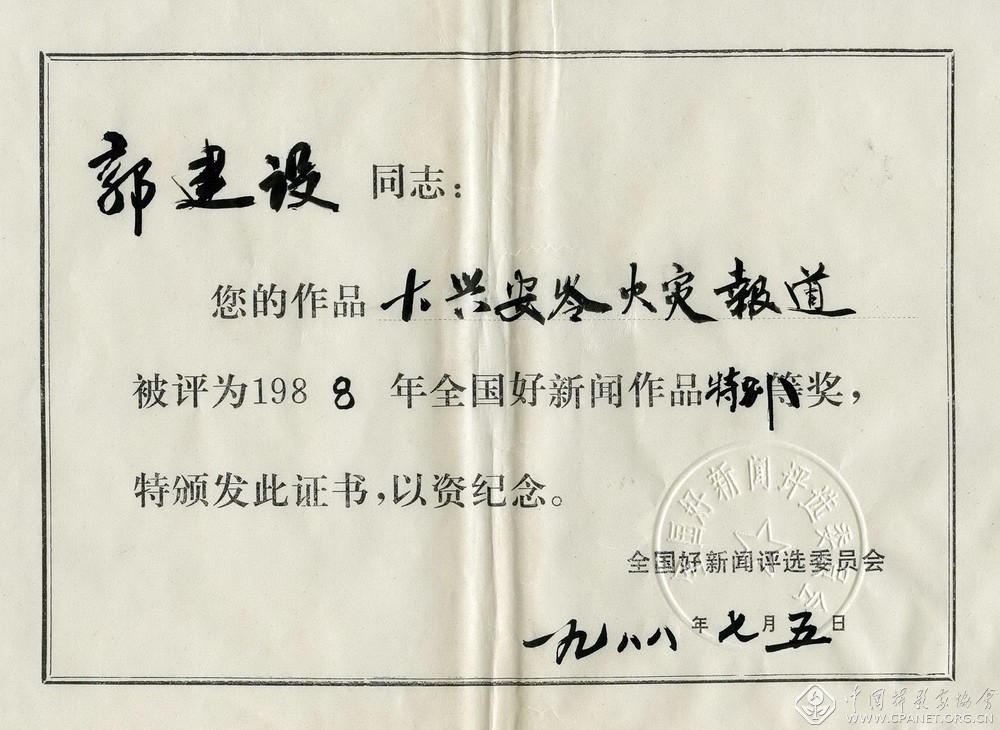 郭建设同志：
您的作品大兴安岺火灾報道
被评为1988年全国好新闻作品特别等奖，
特颁发此证书，以资纪念。
全国好新闻评选委员会
全国好新闻评选委员会
一九八八年七月五日
中国摄影家协会
WWW.CPANET.ORG.CN